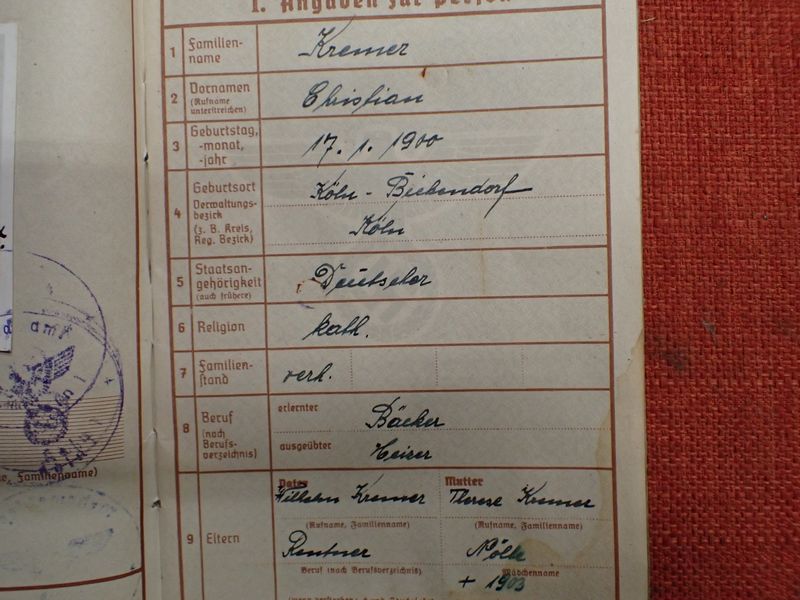 I. Angaben zur Person
1 Familien-
name
Kremer
2 Vornamen
(Rufname
unterstreichen)
Christian
3 Geburtstag,
-monat,
-jahr
17. 1. 1900
4 Geburtsort
Verwaltungs-
bezirk
(z. B. Kreis,
Reg. Bezirk)
Köln - Bickendorf
Köln
5 Staatsan-
gehörigkeit
(auch frühere)
Deutscher
6 Religion
kath.
7 Familien-
stand
verh.
8 Beruf
(nach
Berufs-
verzeichnis)
erlernter
Bäcker
ausgeübter
Heizer
9 Eltern
Vater
Mutter
Wilhelm Kremer
Therese Kremer
(Rufname, Familienname)
(Rufname, Familienname)
Rentner
Beruf (nach Berufsverzeichnis)
Mädchenname
+ 1903
amt
e, Familienname)